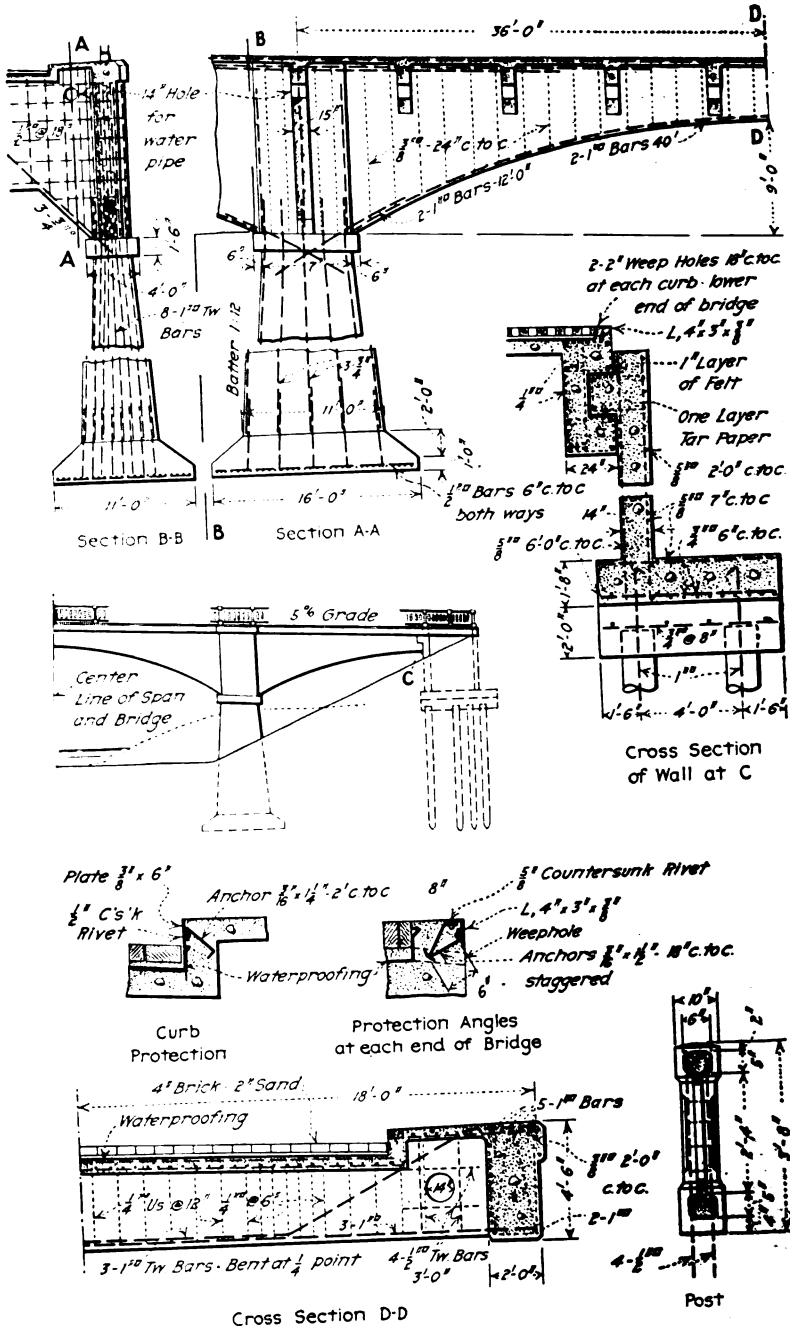 A
B
36'-0"
D
14" Hole
for
water
pipe
15"
3/8"□ - 24" c. to c.
2-1"□ Bars 40'
2-1"□ Bars-12'-0"
D
9'-0"
A
1'-6"
6"
7'
6"
4'-0"
8-1"□ Tw
Bars
Batter 1:12
11'-0"
2'-0"
1'-0"
11'-0"
16'-0"
1/2"□ Bars 6" c. to c
both ways
Section B-B
B
Section A-A
2-2" Weep Holes 18" c. to c.
at each curb. lower
end of bridge
L, 4" x 3" x 3/8"
1" Layer
of Felt
1/4"□
One Layer
Tar Paper
24"
5/8"□ 2'-0" c. to c.
14"
5/8"□ 7" c. to c
5/8"□ 6'-0" c. to c.
3/4"□ 6" c. to c.
1'-8"
2'-0"
3/4"□ @ 8"
1"□
1'-6"
4'-0"
1'-6"
Cross Section
of Wall at C
5% Grade
Center
Line of Span
and Bridge
C
Plate 3/8" x 6"
Anchor 3/16" x 1 1/4" - 2' c. to c
1/2" C's'k
Rivet
Waterproofing
Curb
Protection
5/8" Countersunk Rivet
8"
L, 4" x 3" x 3/8"
Weephole
Anchors 3/16" x 1 1/2" - 18" c. to c.
staggered
6"
Protection Angles
at each end of Bridge
4" Brick - 2" Sand
18'-0"
Waterproofing
5-1"□ Bars
3/8"□ 2'-0"
c. to c.
4'-6"
1/4"□ Us @ 12"
1/4"□ @ 6"
14"
3-1"□
2-1"□
3-1"□ Tw Bars - Bent at 1/4 point
4-1/2"□ Tw. Bars
3'-0"
2'-0"
Cross Section D-D
10"
6"
2"
5"
2'-4"
3'-8"
4-1/2"□
Post